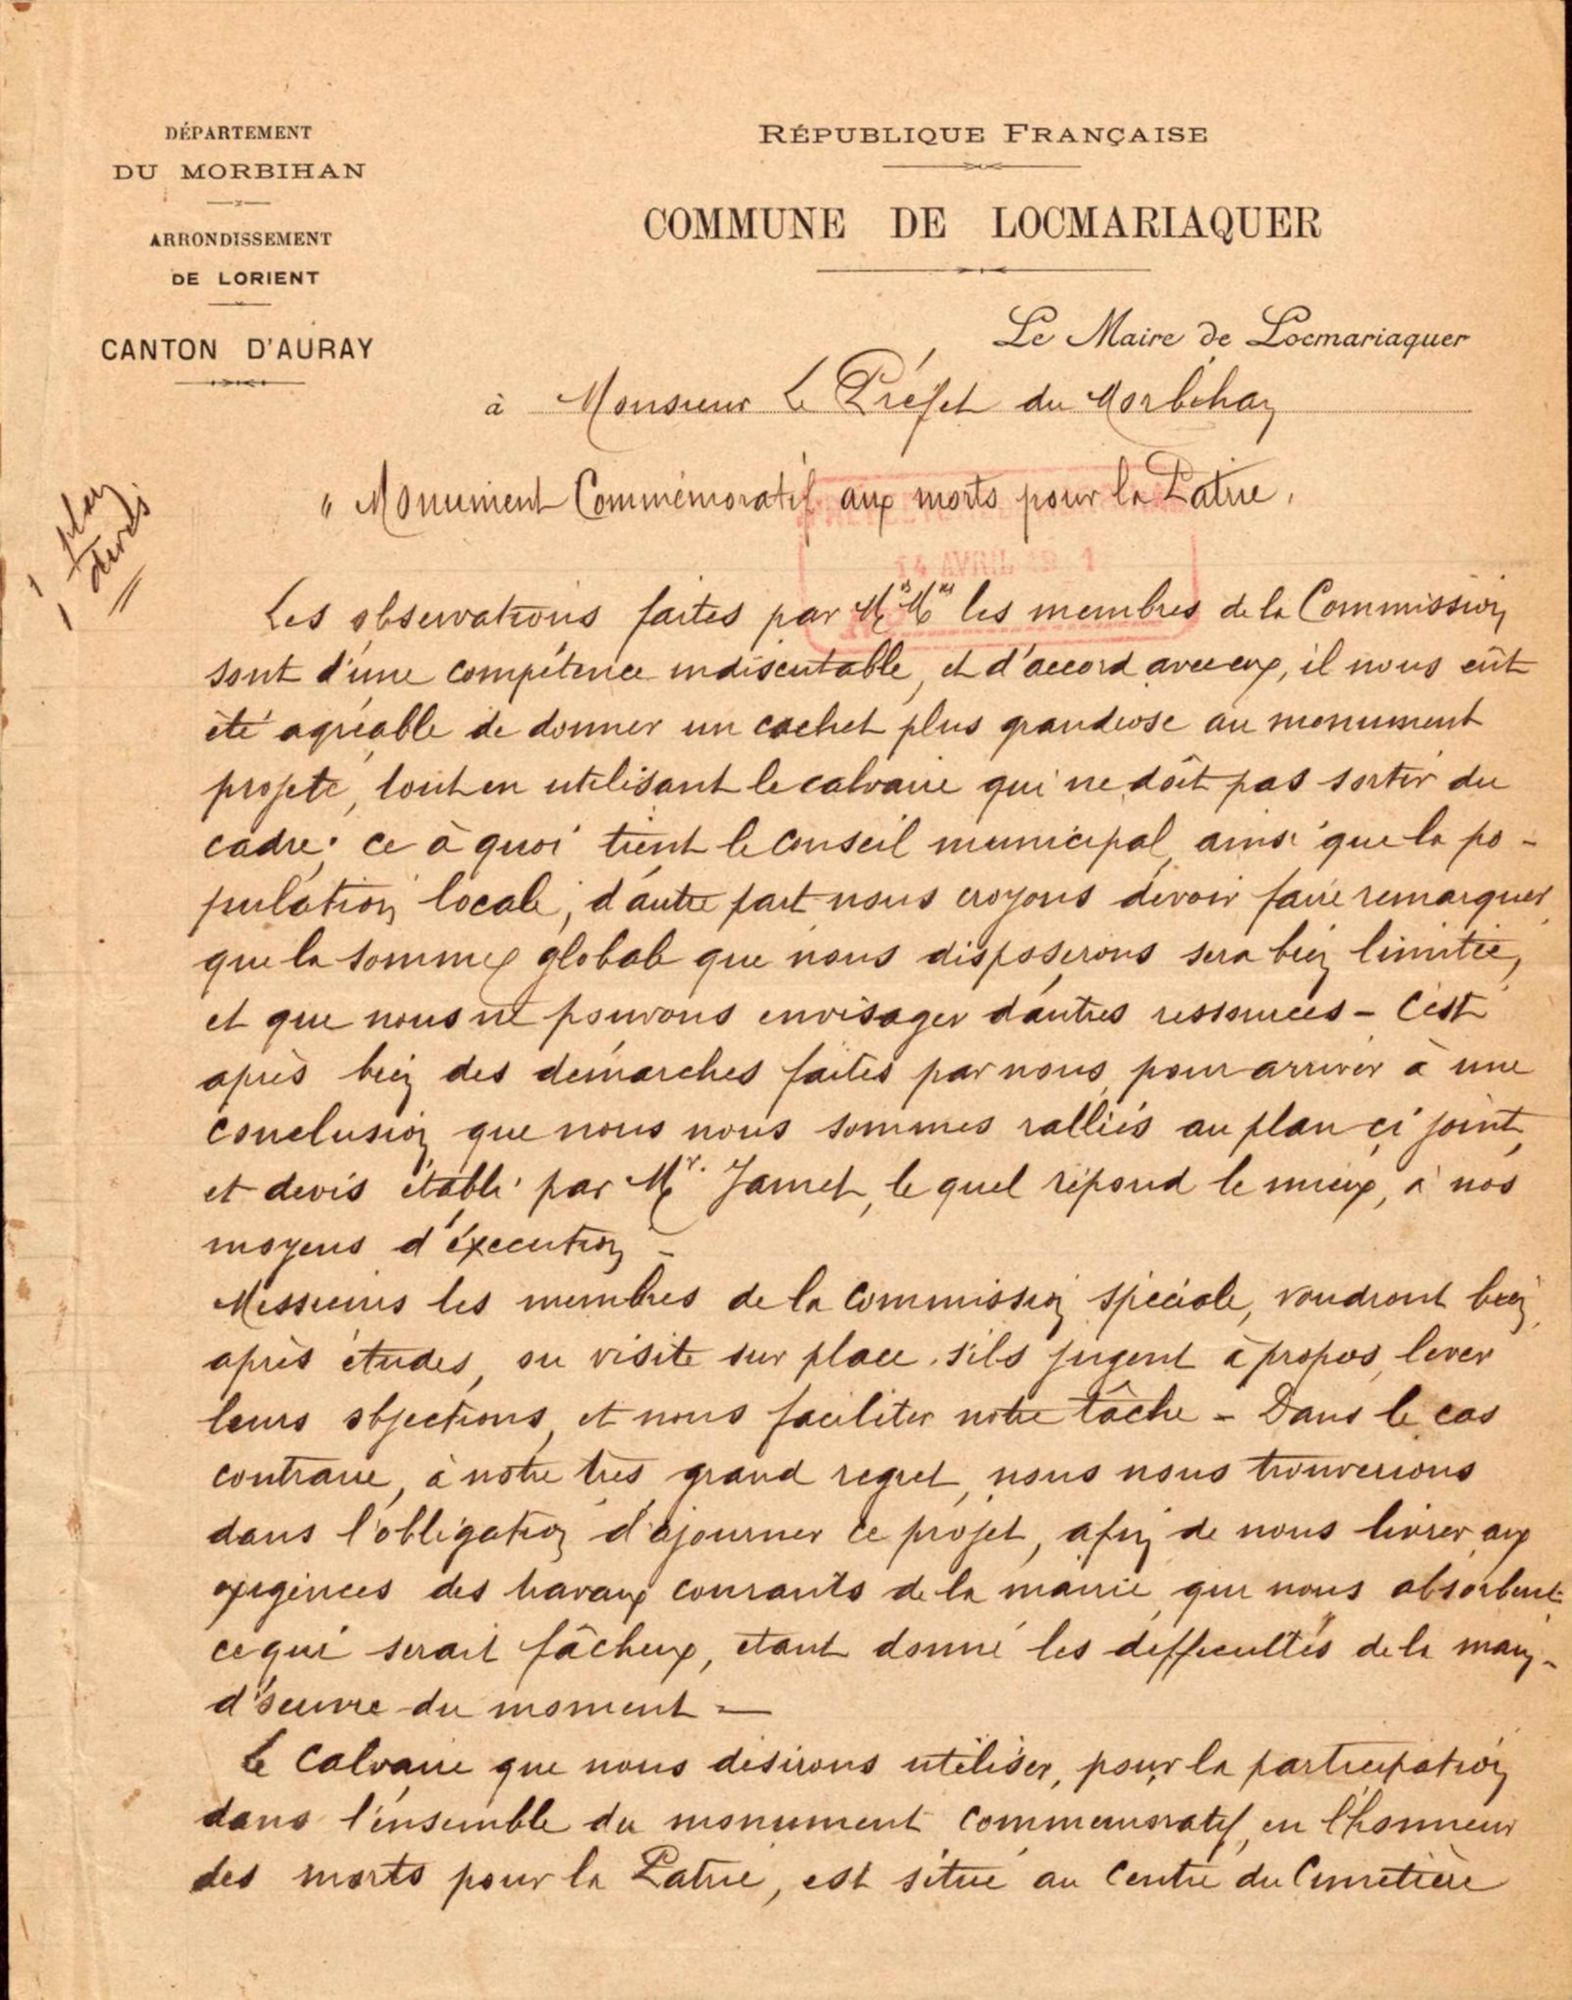 DÉPARTEMENT
DU MORBIHAN
ARRONDISSEMENT
DE LORIENT
CANTON D'AURAY
RÉPUBLIQUE FRANÇAISE
COMMUNE DE LOCMARIAQUER
Le Maire de Locmariaquer
à Monsieur Le Préfet du Morbihan
1 plan
1 devis
"Monument Commémoratif aux morts pour la Patrie.
14 AVRIL
Les observations faites par Mrs Mrs les membres de la Commission
sont d'une compétence indiscutable, et d'accord avec eux, il nous eût
été agréable de donner un cachet plus grandiose au monument
projeté, tout en utilisant le calvaire qui ne doit pas sortir du
cadre; ce à quoi tient le conseil municipal, ainsi que la po-
pulation locale; d'autre part nous croyons devoir faire remarquer,
que la somme globale que nous disposerons sera bien limitée,
et que nous ne pouvons envisager d'autres ressources - C'est
après bien des démarches faites par nous, pour arriver à une
conclusion, que nous nous sommes ralliés au plan ci joint,
et devis établi par Mr. Jamet, le quel répond le mieux, à nos
moyens d'éxecution -
Messieurs les membres de la Commission spéciale, voudront bien,
après études, ou visite sur place, s'ils jugent à propos, lever
leurs objections, et nous faciliter notre tâche - Dans le cas
contraire, à notre très grand regret, nous nous trouverions
dans l'obligation d'ajourner ce projet, afin de nous livrer aux
exigences des travaux courants de la mairie, qui nous absorbent,
ce qui serait fâcheux, étant donné les difficultés de la main-
d'œuvre du moment -
Le Calvaire que nous désirons utiliser, pour la participation
dans l'ensemble du monument commémoratif, en l'honneur
des morts pour la Patrie, est situé au Centre du Cimetière